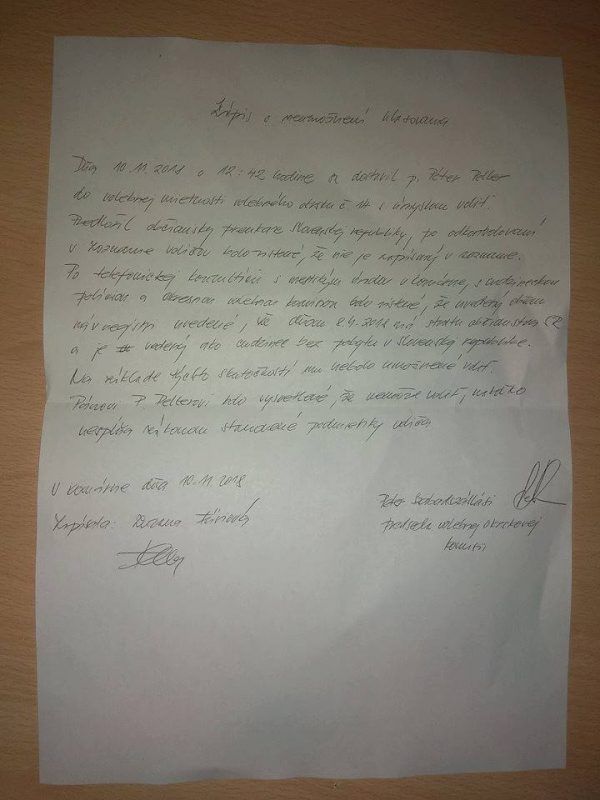 Zápis o neumožnení hlasovania
Dňa 10.11.2018 o 12:42 hodine sa dostavil p. Péter Peller
do volebnej miestnosti volebného okrsku č. 14 s úmyslom voliť.
Predložil občiansky preukaz Slovenskej republiky, po odkontrolovaní
v zozname voličov bolo zistené, že nie je zapísaný v zozname.
Po telefonickej konzultácii s mestským úradom v Komárne, s cudzineckou
políciou a okresnou volebnou komisiou bolo zistené, že uvedený občan
má v registri uvedené, že dňom 2018 stratu občianstva SR
a je vedený ako cudzinec bez pobytu v Slovenskej republike.
Na základe týchto skutočností mu nebolo umožnené voliť.
Pánovi P. Pellerovi bolo vysvetlené, že nemôže voliť, nakoľko
nespĺňa zákonom stanovené podmienky voliča.
V Komárne dňa 10.11.2018
Zapísala: Zuzana
Péter
Predseda volebnej okrskovej
komisii